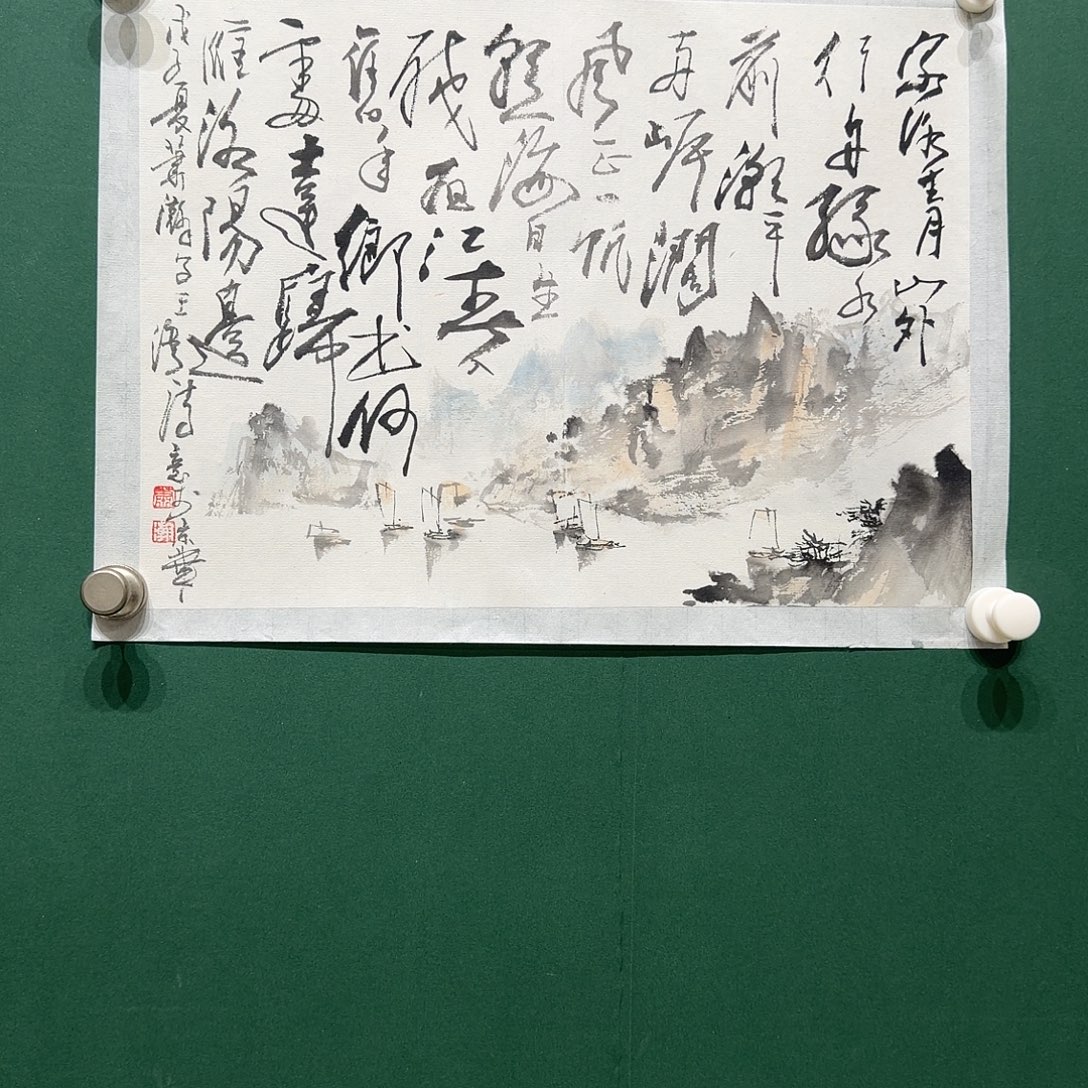 客路青山外
行舟綠水
前潮平
兩岸闊
風正一帆
懸海日生
殘夜江春入
舊年鄉書何
處達歸
雁洛陽邊
戊子夏蕭瀚寫王灣詩意於京華